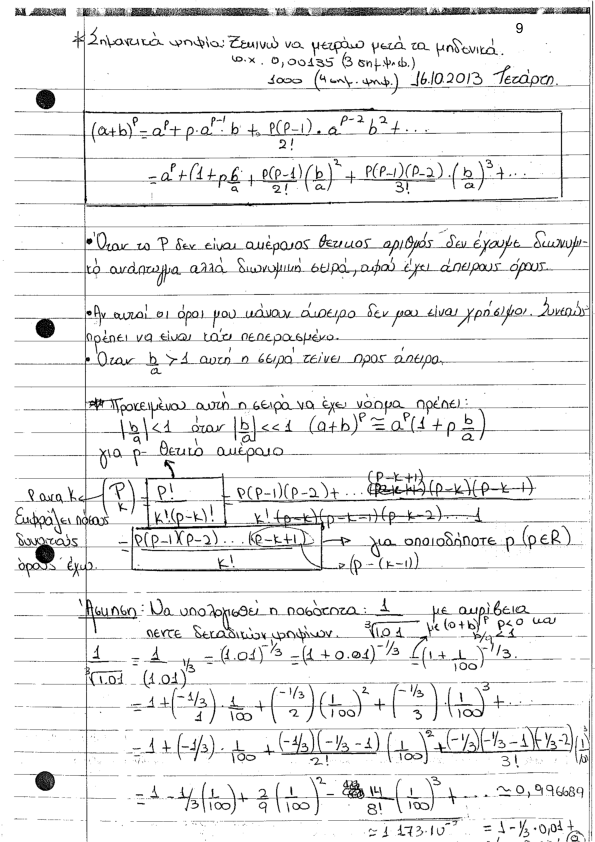 9
* Σημαντικά ψηφία: Ξεκινώ να μετράω μετά τα μηδενικά.
π.χ. 0,00135 (3 σημ.ψηφ.)
1000 (4 σημ. ψηφ.) 16.10.2013 Τετάρτη.
(a+b)^p = a^p + p·a^{p-1}·b + p(p-1)/2! · a^{p-2} b^2 + ...
= a^p + (1 + p b/a + p(p-1)/2! (b/a)^2 + p(p-1)(p-2)/3! · (b/a)^3 + ...
• Όταν το p δεν είναι ακέραιος θετικος αριθμός δεν έχουμε διωνυμι-
κό ανάπτυγμα αλλά διωνυμική σειρά, αφού έχει άπειρους όρους.
• Αν αυτοί οι όροι μου κάνουν άπειρο δεν μου είναι χρήσιμοι. Συνεπώς
πρέπει να είναι κάτι πεπερασμένο.
• Όταν b/a > 1 αυτή η σειρά τείνει προς άπειρο.
** Προκειμένου αυτή η σειρά να έχει νόημα πρέπει:
|b/a| < 1 όταν |b/a| << 1 (a+b)^p ≅ a^p (1 + p b/a)
για p- θετικό ακέραιο
(p-k+1)
p ανα k ← (p k) = p!/k!(p-k)! = p(p-1)(p-2)+... (p-k)(p-k-1) / k!(p-k)(p-k-1)(p-k-2)...1
Εκφράζει πόσους
δυνατούς = p(p-1)(p-2)...(p-k+1) / k! → για οποιοδήποτε p (p∈R)
όρους έχω. → (p-(k-1))
Άσκηση: Να υπολογισθεί η ποσότητα: 1/∛1.01 με ακρίβεια
πεντε δεκαδικών ψηφίων. με (a+b)^p p<0 και b/a<1
1/∛1.01 = 1/(1.01)^{1/3} = (1.01)^{-1/3} = (1+0.01)^{-1/3} = (1 + 1/100)^{-1/3}.
= 1 + (-1/3 1) · 1/100 + (-1/3 2) (1/100)^2 + (-1/3 3) · (1/100)^3 + ...
= 1 + (-1/3) · 1/100 + (-1/3)(-1/3-1)/2! (1/100)^2 + (-1/3)(-1/3-1)(-1/3-2)/3! (1/100)^3
= 1 - 1/3 (1/100) + 2/9 (1/100)^2 - 14/8! (1/100)^3 + ... ≃ 0,996689
= 1 - 1/3 · 0,01 +